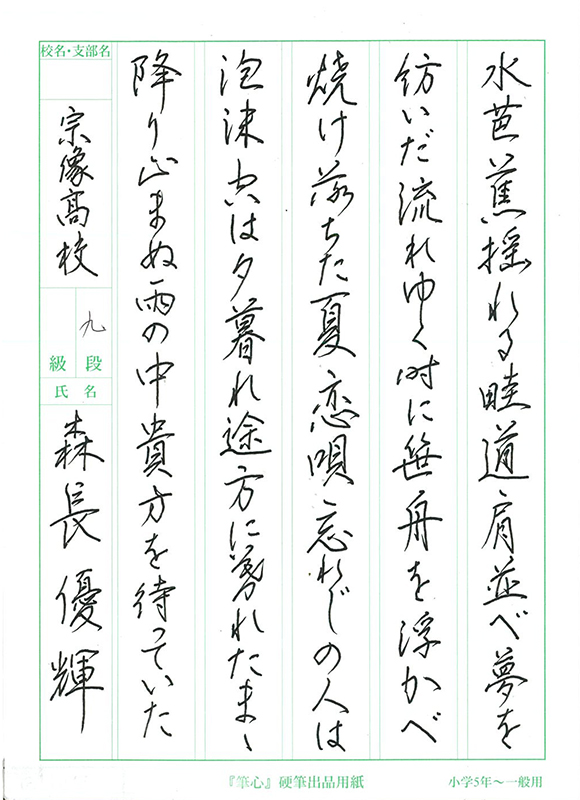 水芭蕉揺れる畦道肩並べ夢を
紡いだ流れゆく時に笹舟を浮かべ
焼け落ちた夏恋唄忘れじの人は
泡沫空は夕暮れ途方に暮れたまゝ
降り止まぬ雨の中貴方を待っていた
校名・支部名
宗像高校
九
級 段
氏 名
森長優輝
『筆心』硬筆出品用紙
小学5年〜一般用